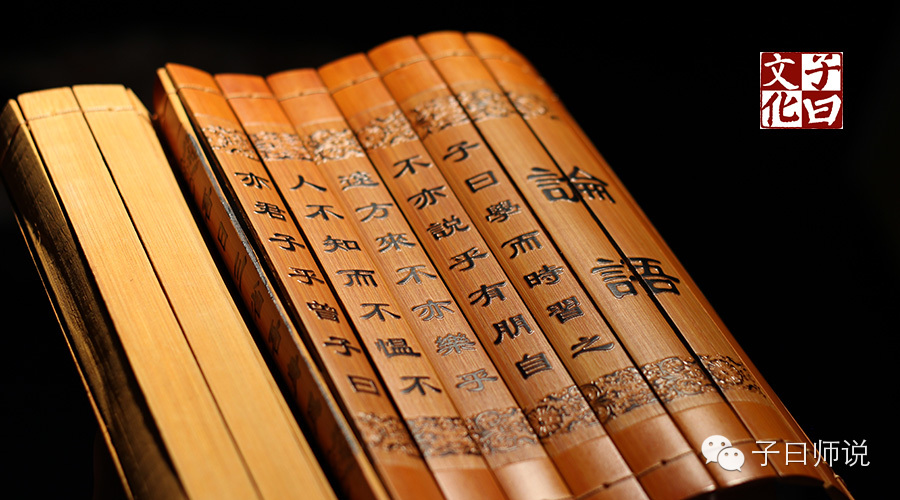 論語
子曰學而時習之
不亦説乎有朋自
遠方來不亦樂乎
人不知而不愠不
亦君子乎曾子曰
子曰
文化
子曰师说